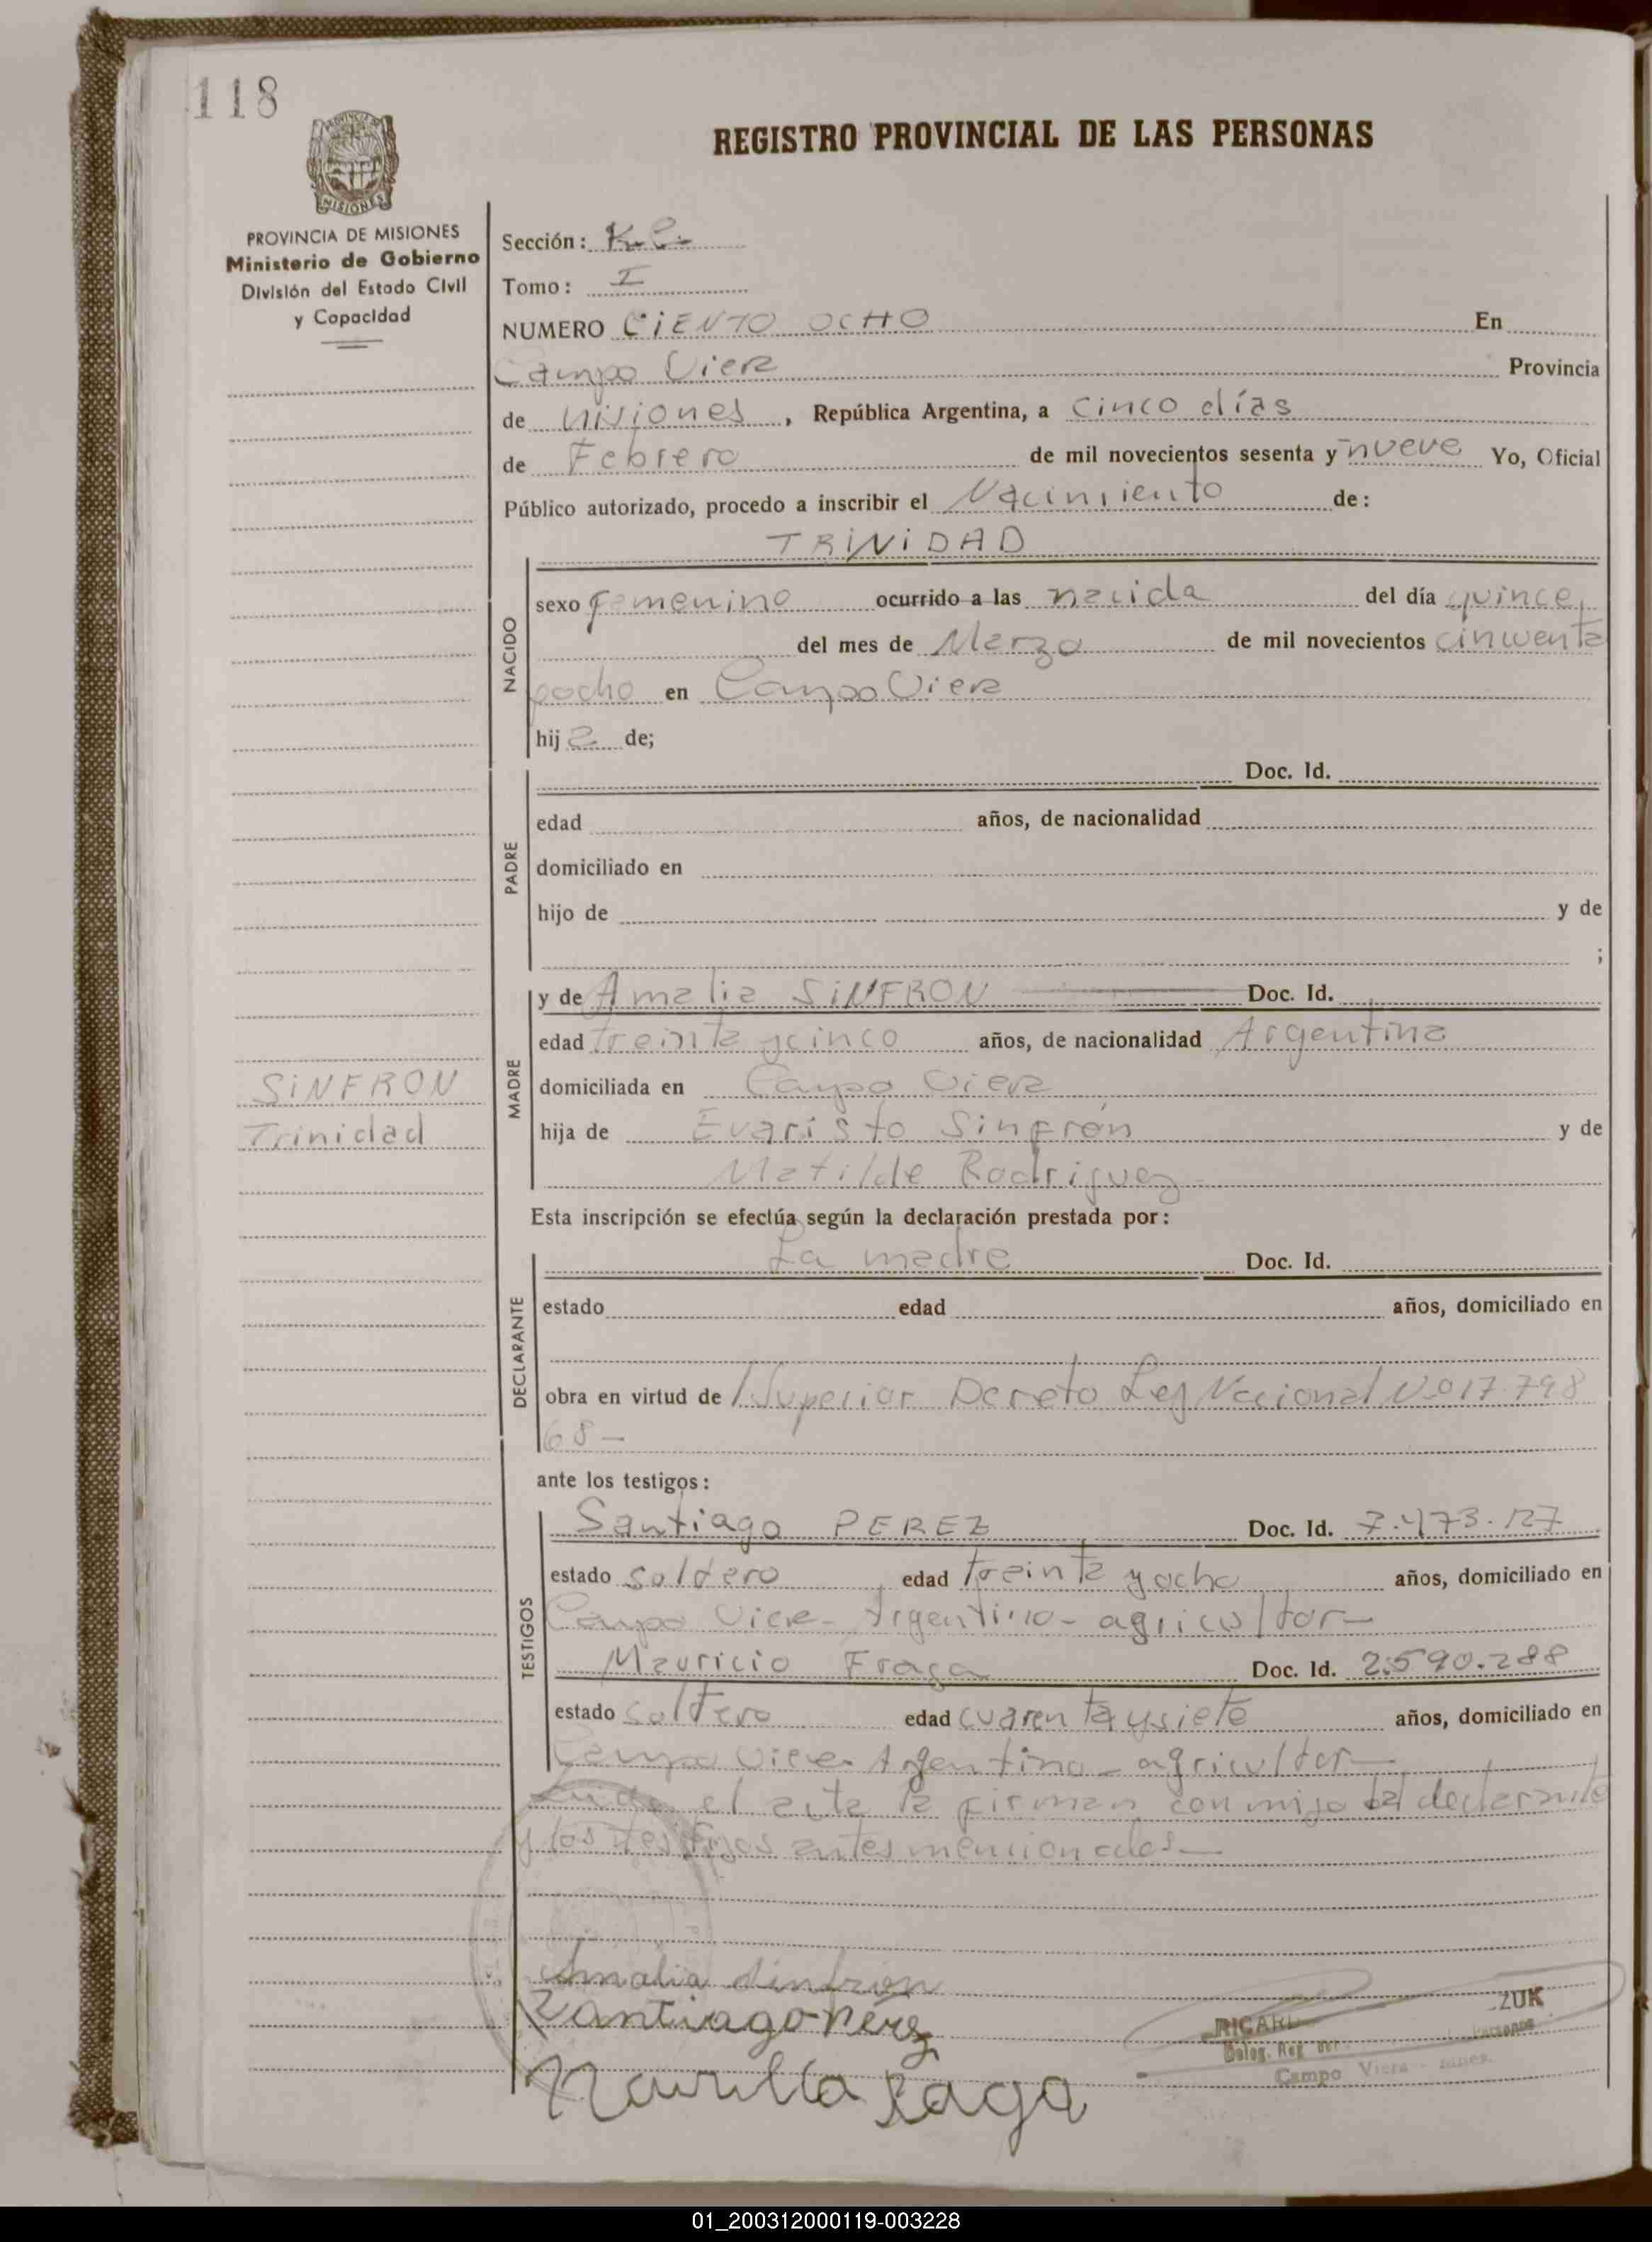 118
MISIONES
REGISTRO PROVINCIAL DE LAS PERSONAS
PROVINCIA DE MISIONES
Ministerio de Gobierno
División del Estado Civil
y Capacidad
Sección:
Tomo: I
NUMERO CIENTO OCHO En
Campo Viera Provincia
de Misiones, República Argentina, a cinco días
de Febrero de mil novecientos sesenta y nueve Yo, Oficial
Público autorizado, procedo a inscribir el Nacimiento de:
TRINIDAD
NACIDO
sexo femenino ocurrido a las nacida del día quince
del mes de Marzo de mil novecientos cincuenta
yocho en Campo Viera
hija de;
PADRE
Doc. Id.
edad años, de nacionalidad
domiciliado en
hijo de y de
;
MADRE
y de Amalia SINFRON Doc. Id.
edad treinta y cinco años, de nacionalidad Argentina
domiciliada en Campo Viera
hija de Evaristo Sinfrón y de
Matilde Rodriguez
SINFRON
Trinidad
Esta inscripción se efectúa según la declaración prestada por:
DECLARANTE
La madre Doc. Id.
estado edad años, domiciliado en
obra en virtud de Superior Decreto Ley Nacional No 17.798
68-
ante los testigos:
TESTIGOS
Santiago PEREZ Doc. Id. 7.473.127
estado soltero edad treinta y ocho años, domiciliado en
Campo Viera - Argentino - agricultor -
Mauricio Fraga Doc. Id. 2.590.288
estado soltero edad cuarenta y siete años, domiciliado en
Campo Viera - Argentino - agricultor -
el acta la firman conmigo declarante
y los testigos antes mencionados -
Amalia sinfron
Santiago Pérez
RICAR ZUK
Deleg. Reg. Personas
Campo Viera
01_200312000119-003228